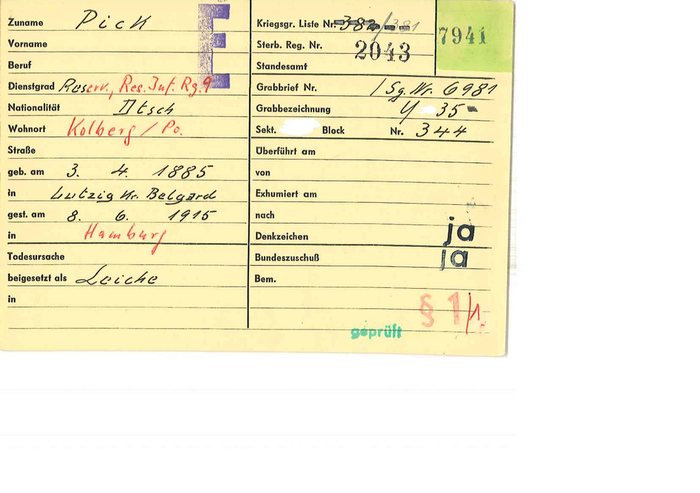 Zuname Pick
Vorname
Beruf
Dienstgrad Reserv., Res. Inf. Rg. 9
Nationalität Dtsch
Wohnort Kolberg / Po.
Straße
geb. am 3. 4. 1885
in Lutzig Kr. Belgard
gest. am 8. 6. 1915
in Hamburg
Todesursache
beigesetzt als Leiche
in
E
Kriegsgr. Liste Nr. 382/381
Sterb. Reg. Nr. 2043
Standesamt
7941
Grabbrief Nr. / Sg. Nr. 6981
Grabbezeichnung Y 35-
Sekt. Block Nr. 344
Überführt am
von
Exhumiert am
nach
Denkzeichen ja
Bundeszuschuß ja
Bem.
§ 1/1.
geprüft